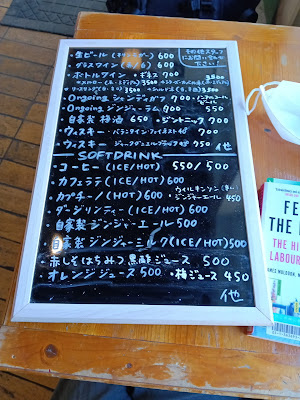 その他スタッフにお問い合せ下さい!
・生ビール(キリンラガー) 600
・グラスワイン(赤/白) 600
・ボトルワイン ・ギネス 700
3500
3500
3500
・Ongoing ジンジャンガフ 700
・ノンアルコールビール
・Ongoing ジンジャーラム 700 550
・自家製 梅酒 650 ・ジントニック 700
・ウィスキー ・バランタイン 700
・ウィスキー 750 他
SOFTDRINK
・コーヒー (ICE/HOT) 550/500
・カフェラテ (ICE/HOT) 600
・カプチーノ (HOT) 600
・ウィルキンソン(辛口)ジンジャーエール 450
・ダージリンティー (ICE/HOT) 600
・自家製 ジンジャーエール 500
・自家製 ジンジャーミルク (ICE/HOT) 500
・赤しそはちみつ 黒酢ジュース 500
・オレンジジュース 500 ・梅ジュース 450
他
FE
THE
THE HI
LABOU